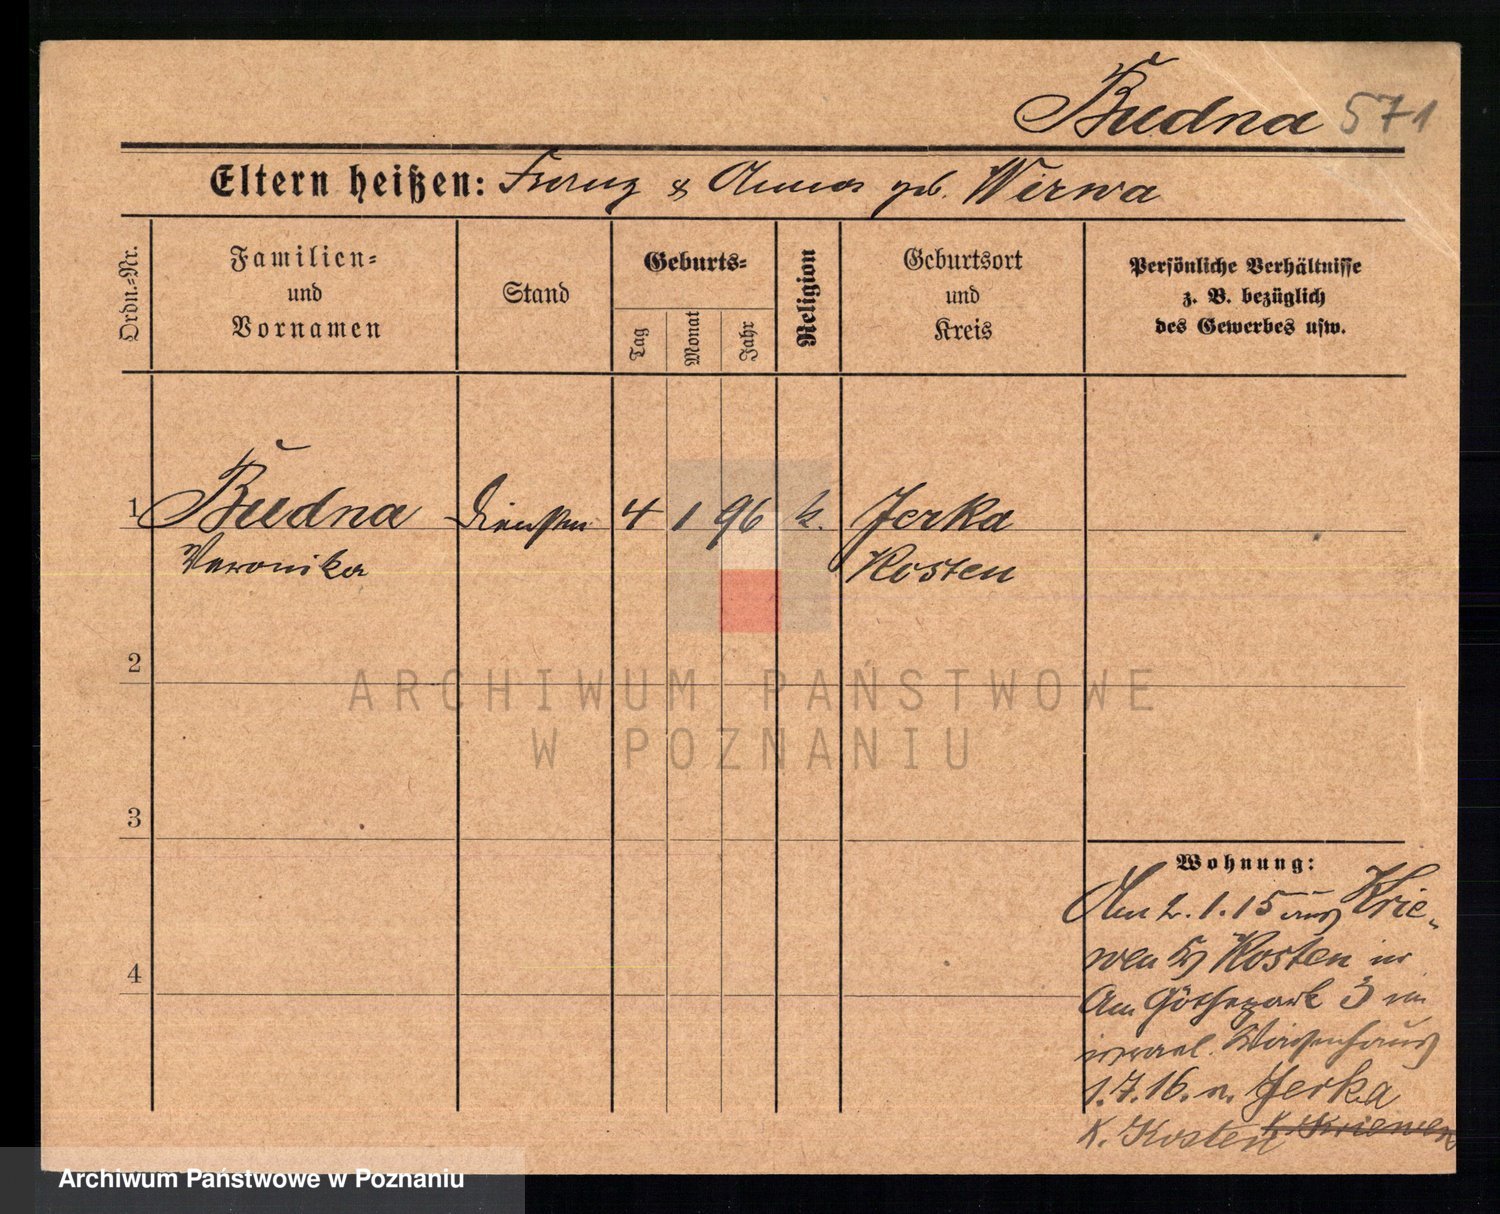 Budna 571
Eltern heißen: Franz & Anna geb. Wirwa
Ordn.=Nr.
Familien=
und
Vornamen
Stand
Geburts=
Tag
Monat
Jahr
Religion
Geburtsort
und
Kreis
Persönliche Verhältnisse
z. B. bezüglich
des Gewerbes usw.
1 Budna 4 1 96 k. Jerka
Veronika Kosten
2
ARCHIWUM PAŃSTWOWE
W POZNANIU
3
Wohnung:
Am 2.1.15 aus Krie-
wen Kosten in
4
Am Göthepark 3 im
israel. Waisenhaus
1.7.16. n. Jerka
K. Kosten K. Kriewen
Archiwum Państwowe w Poznaniu